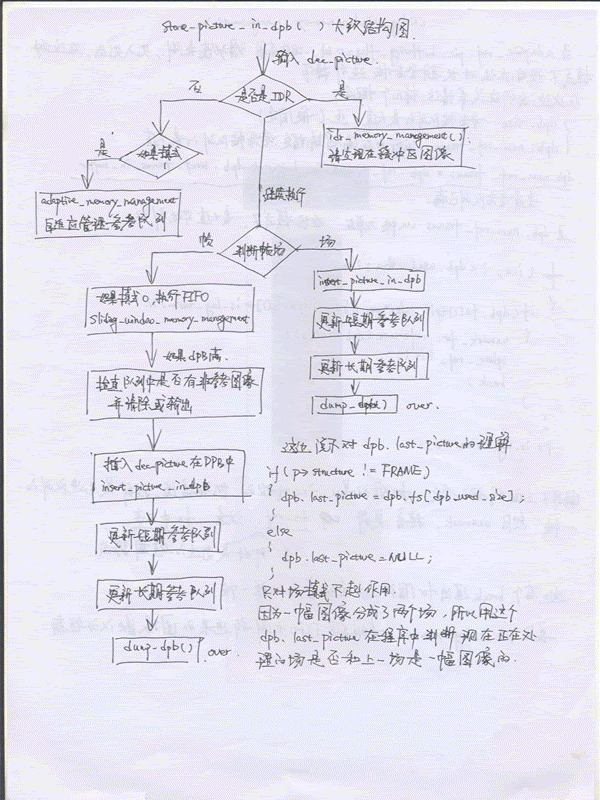 store_picture_in_dpb()大致结构图
输入 dec_picture.
是否是IDR
否
是
idr_memory_management()
清空现在缓冲区图像
是
如果模式
adaptive_memory_management
自适应管理参考队列
继续执行
帧
判断帧场
场
如果模式0,执行FIFO
sliding_window_memory_management
insert_picture_in_dpb
更新短期参考队列
更新长期参考队列
dump_dpb() over.
如果dpb满.
检查队列中是否有非参考图像
并清除或输出
插入dec_picture在DPB中
insert_picture_in_dpb
更新短期参考队列
更新长期参考队列
dump_dpb() over.
这边谈下对dpb.last_picture的理解
if(p->structure != FRAME)
{
dpb.last_picture = dpb.fs[dpb.used_size];
}
else
{
dpb.last_picture = NULL;
}
只对场模式下起作用.
因为一幅图像分成了两个场,所以用这个
dpb.last_picture在程序中判断现在正在处
理的场是否和上一场是一幅图像的.